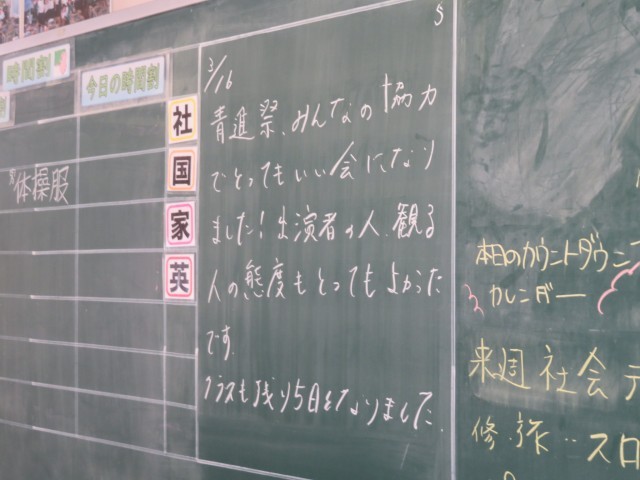 時間割
今日の時間割
体操服
社
国
家
英
5
3/16
青進祭、みんなの協力
でとってもいい会になり
ました!出演者の人、観る
人の態度もとってもよかった
です。
クラスも残り5日となりました。
本日のカウントダウン
カレンダー
来週 社会テ
修・旅‥スロ